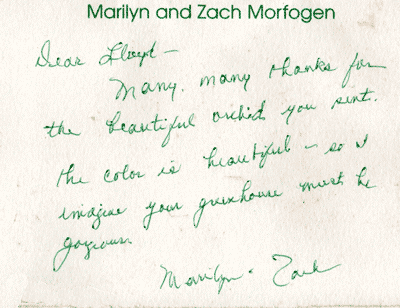 Marilyn and Zach Morfogen
Dear Lloyd —
Many, many thanks for
the beautiful orchid you sent.
The color is beautiful – so I
imagine your greenhouse must be
gorgeous
Marilyn - Zach